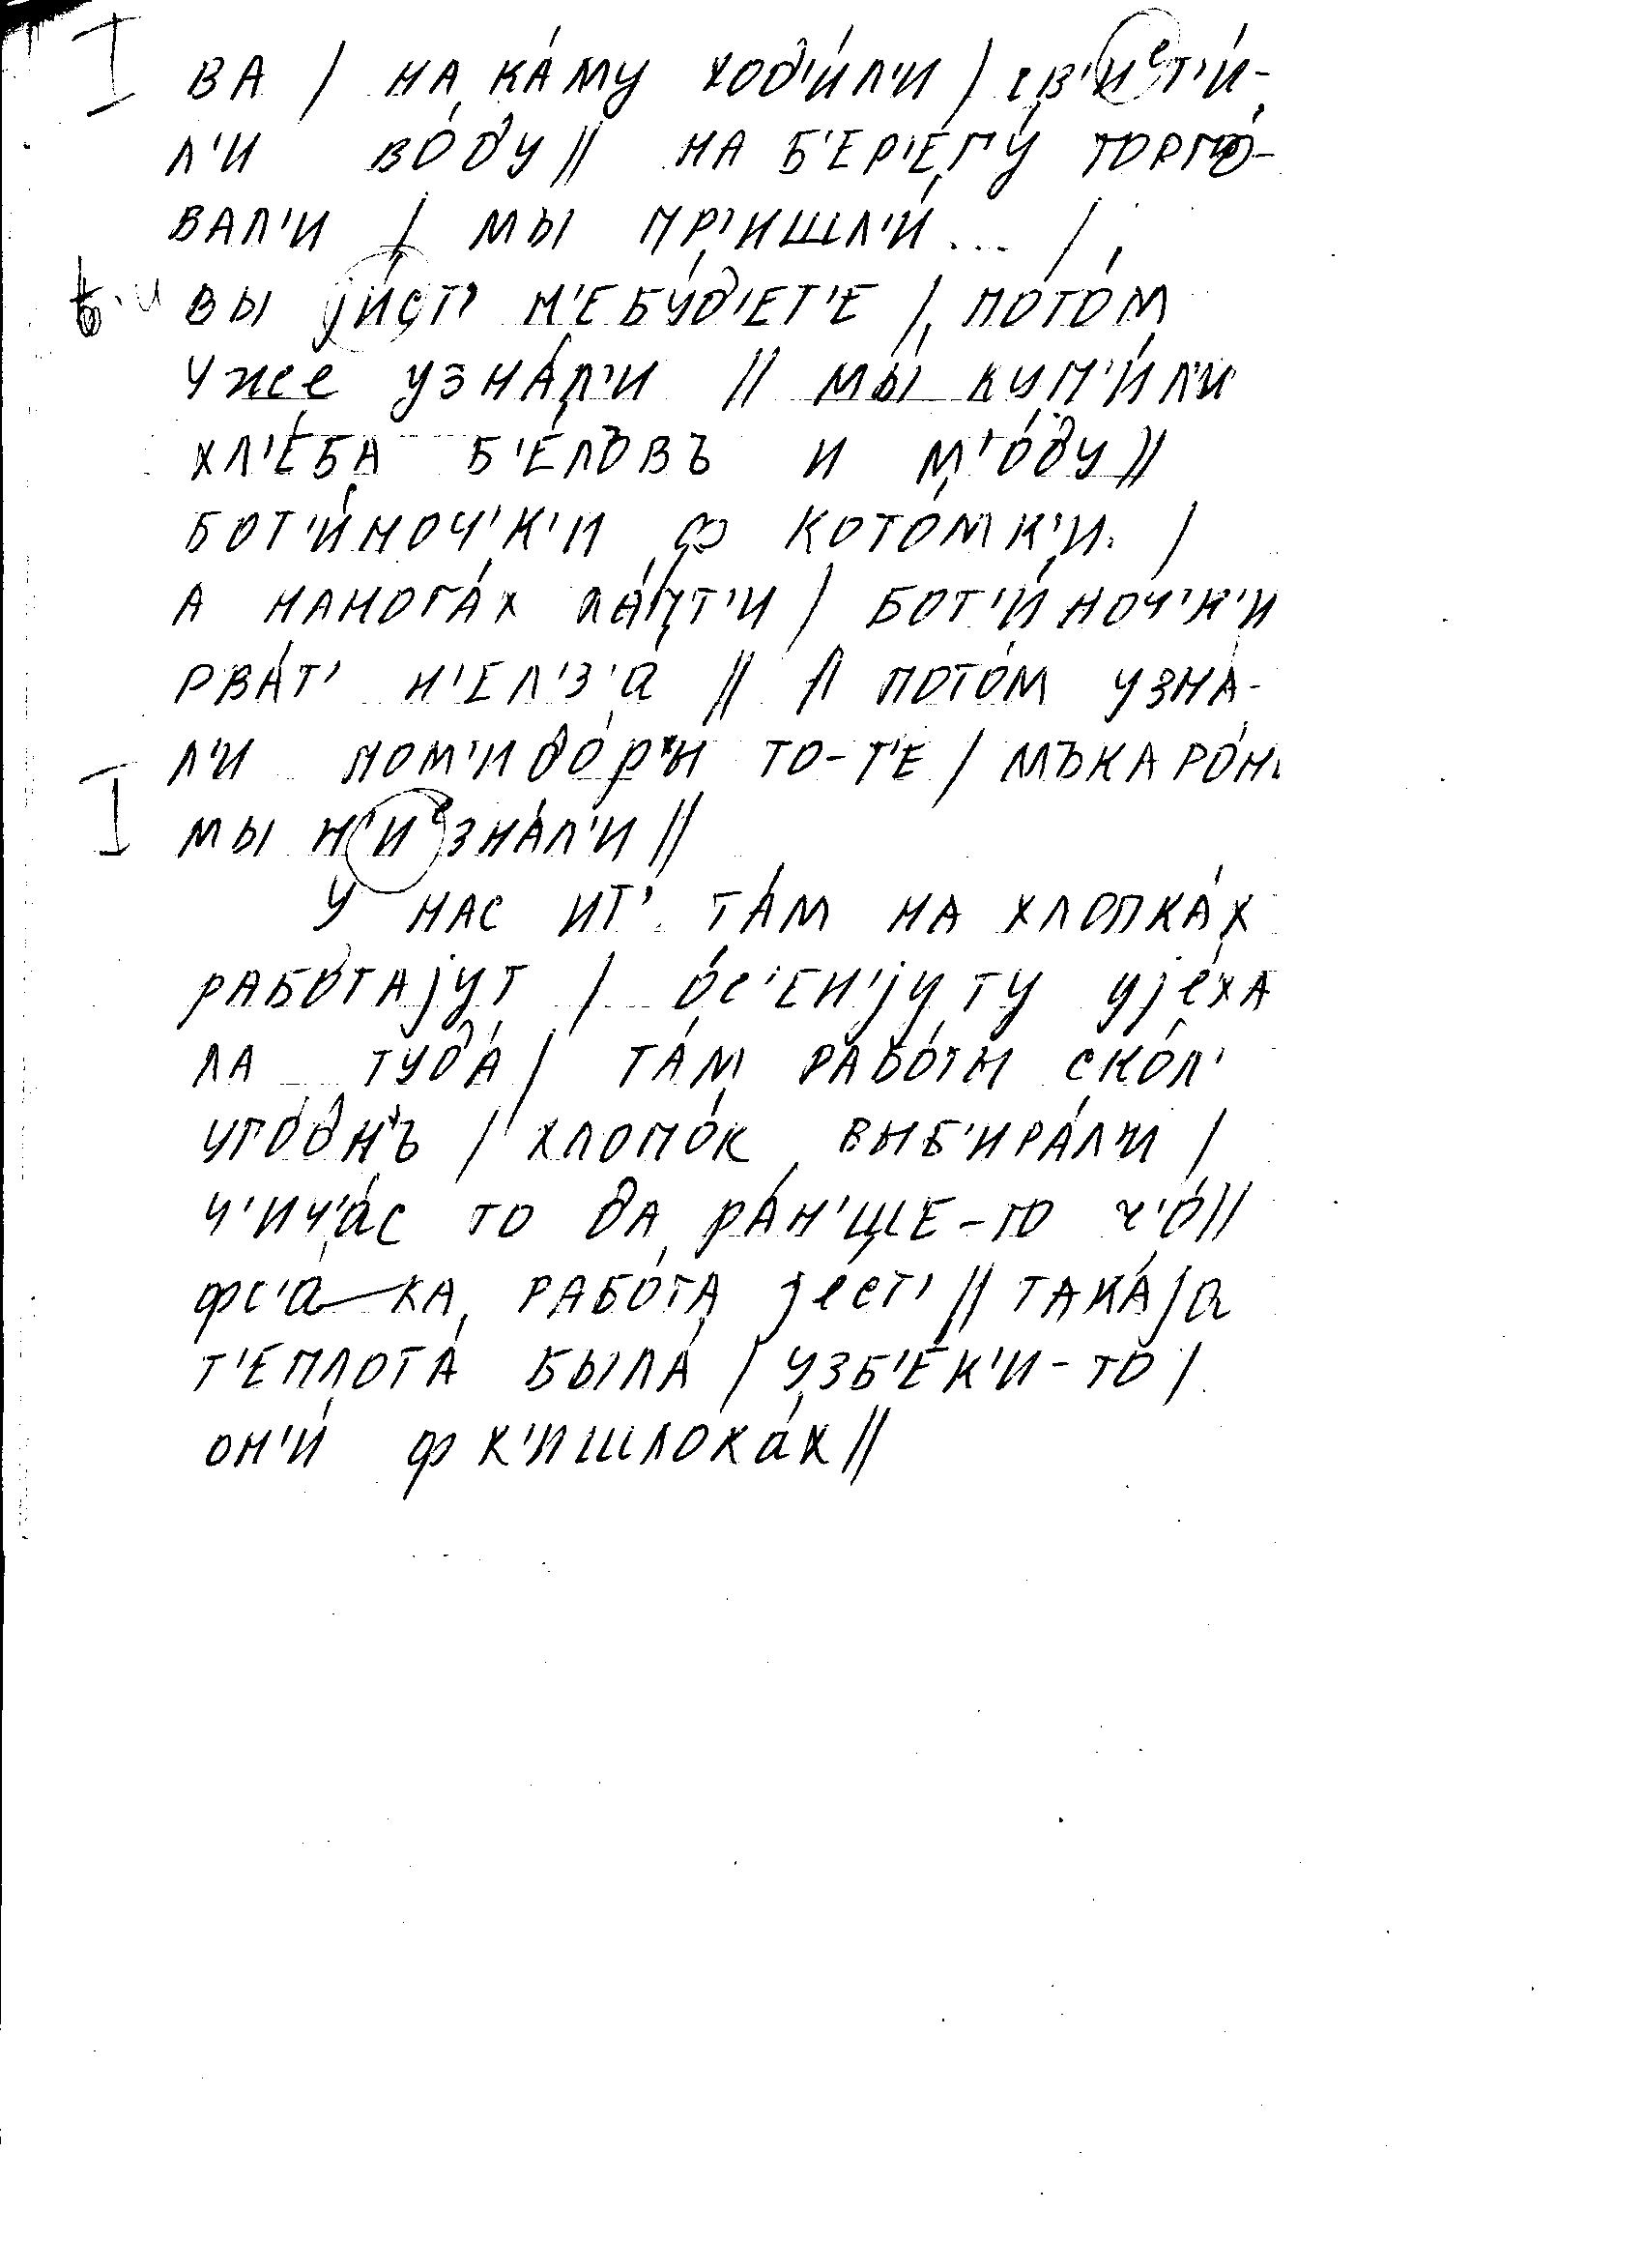 I ВА / НА КА́МУ ХОД'И́Л'И / СВ'ИᵉТ'И́-
Л'И ВО́ДУ // НА Б'ЕР'ЕГУ́ ТОРГО́-
ВАЛ'И / МЫ ПР'ИШЛ'И́ ... /
ѣ·и ВЫ jИ́СТ' Н'Е БУ́Д'ЕТ'Е / ПОТО́М
Уже УЗНА́Л'И // МЫ́ КУП'И́Л'И
ХЛ'Е́БА Б'Е́ЛЪВЪ И М'О́ДУ //
БОТ'И́НОЧ'К'И ф КОТО́МК'И /
А НАНОГА́Х ЛА́ПТ'И / БОТ'И́НОЧ'К'И
РВАТ' Н'ЕЛ'З'А́ // А ПОТО́М УЗНА́-
Л'И ПОМ'ИДО́РЫ ТО-Т'Е / МЪКАРО́НЫ
I МЫ Н'ИᵉЗНА́Л'И //
У НАС ИТ' ТА́М НА ХЛОПКА́Х
РАБО́ТАjУТ / О́С'ЕН'jУ ТУ Уjе́ХА
ЛА ТУДА́ / ТА́М РАБО́ТЫ СКО́Л'
УГО́ДНЪ / ХЛОПО́К ВЫБ'ИРА́Л'И /
Ч'ИЧ'А́С ТО ДА РА́Н'ШЕ-ТО Ч'О́ //
ФС'А́КА РАБО́ТА jе́СТ' // ТАКА́jА
Т'ЕПЛОТА́ БЫЛА́ / УЗБ'Е́К'И-ТО /
ОН'И́ Ф К'ИШЛОКА́Х //